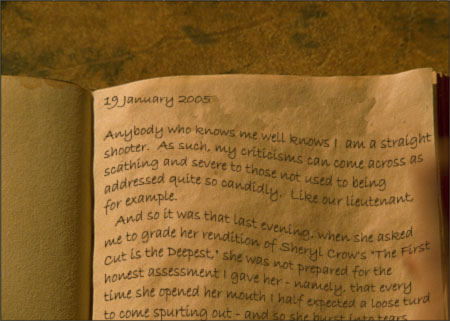 19 January 2005
Anybody who knows me well knows I am a straight
shooter. As such, my criticisms can come across as
scathing and severe to those not used to being
addressed quite so candidly. Like our lieutenant,
for example.
And so it was that last evening, when she asked
me to grade her rendition of Sheryl Crow's "The First
Cut is the Deepest," she was not prepared for the
honest assessment I gave her - namely, that every
time she opened her mouth I half expected a loose turd
to come spurting out - and so she burst into tears